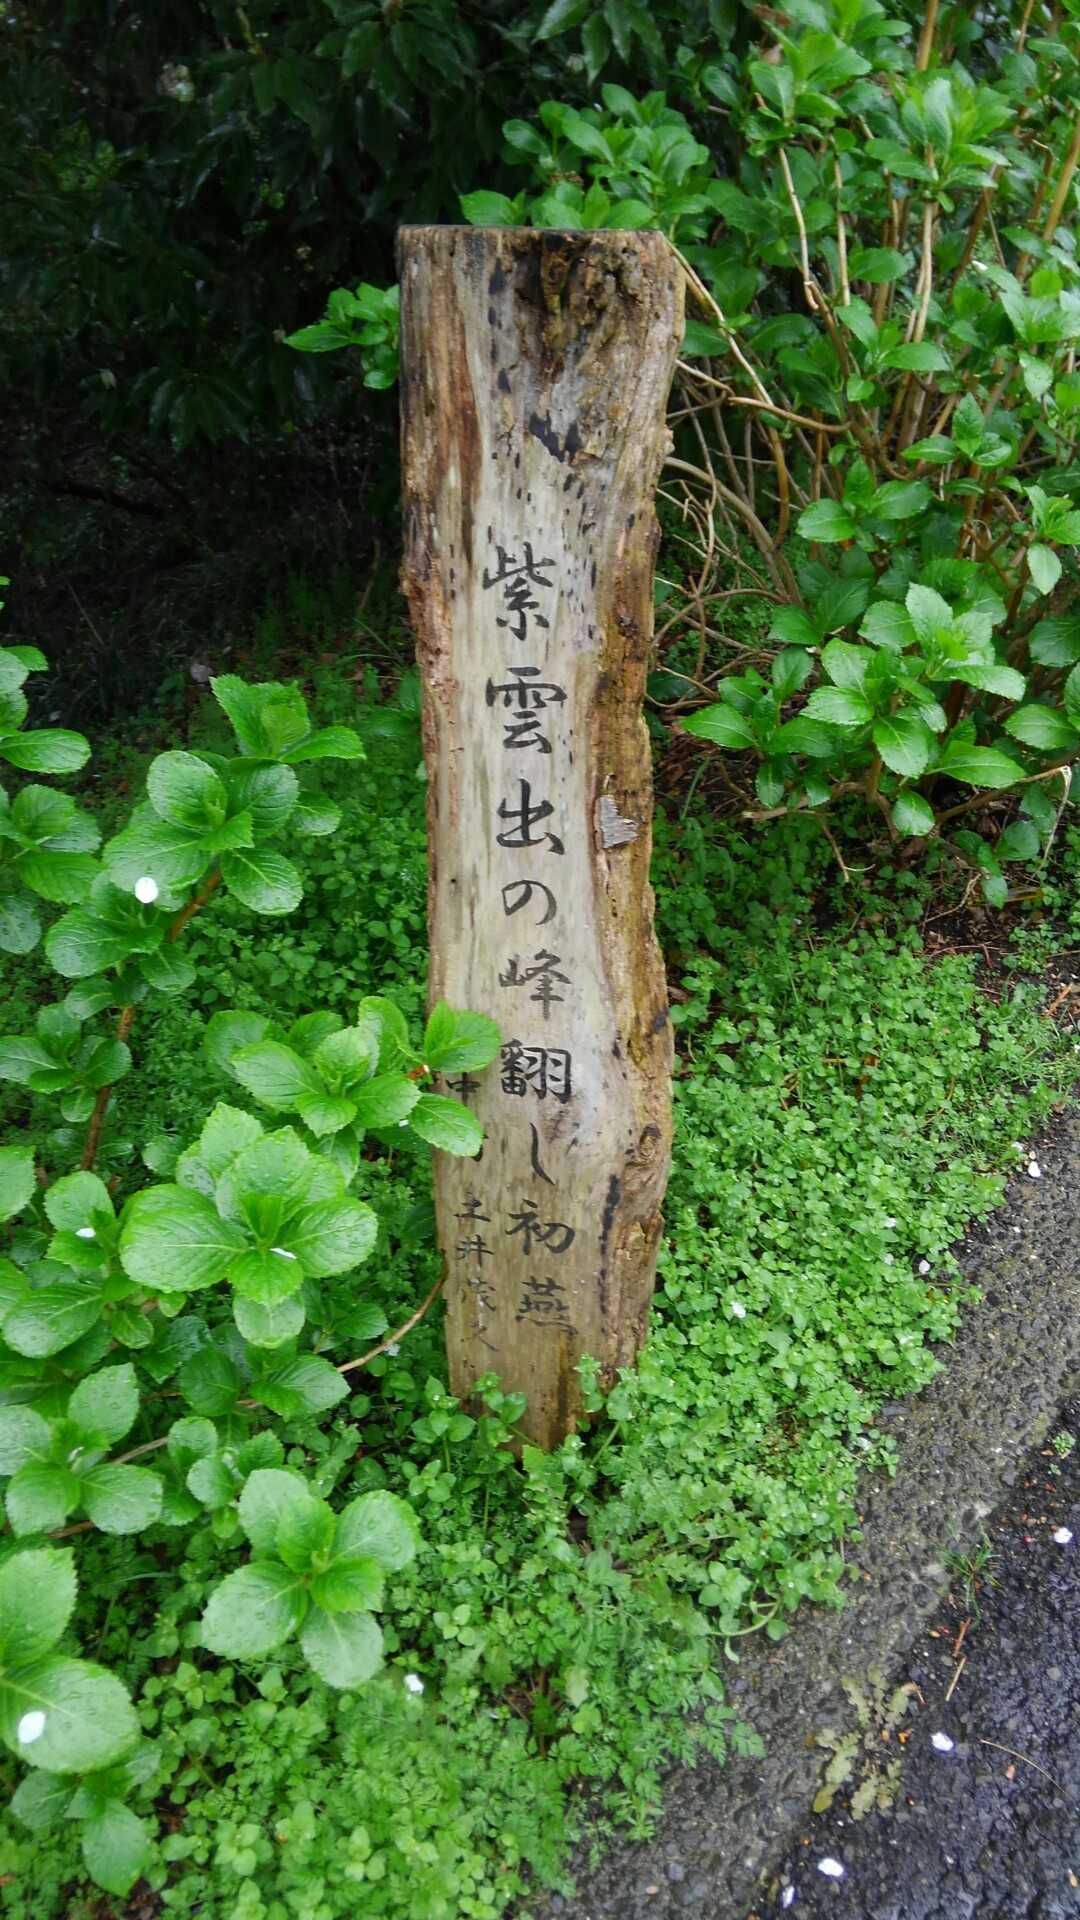 紫雲出の峰翻し初燕
中
土井茂人